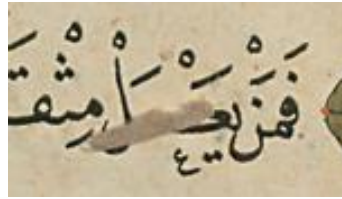 فَمَنْ يَعْمَلْ مِثْقَـ